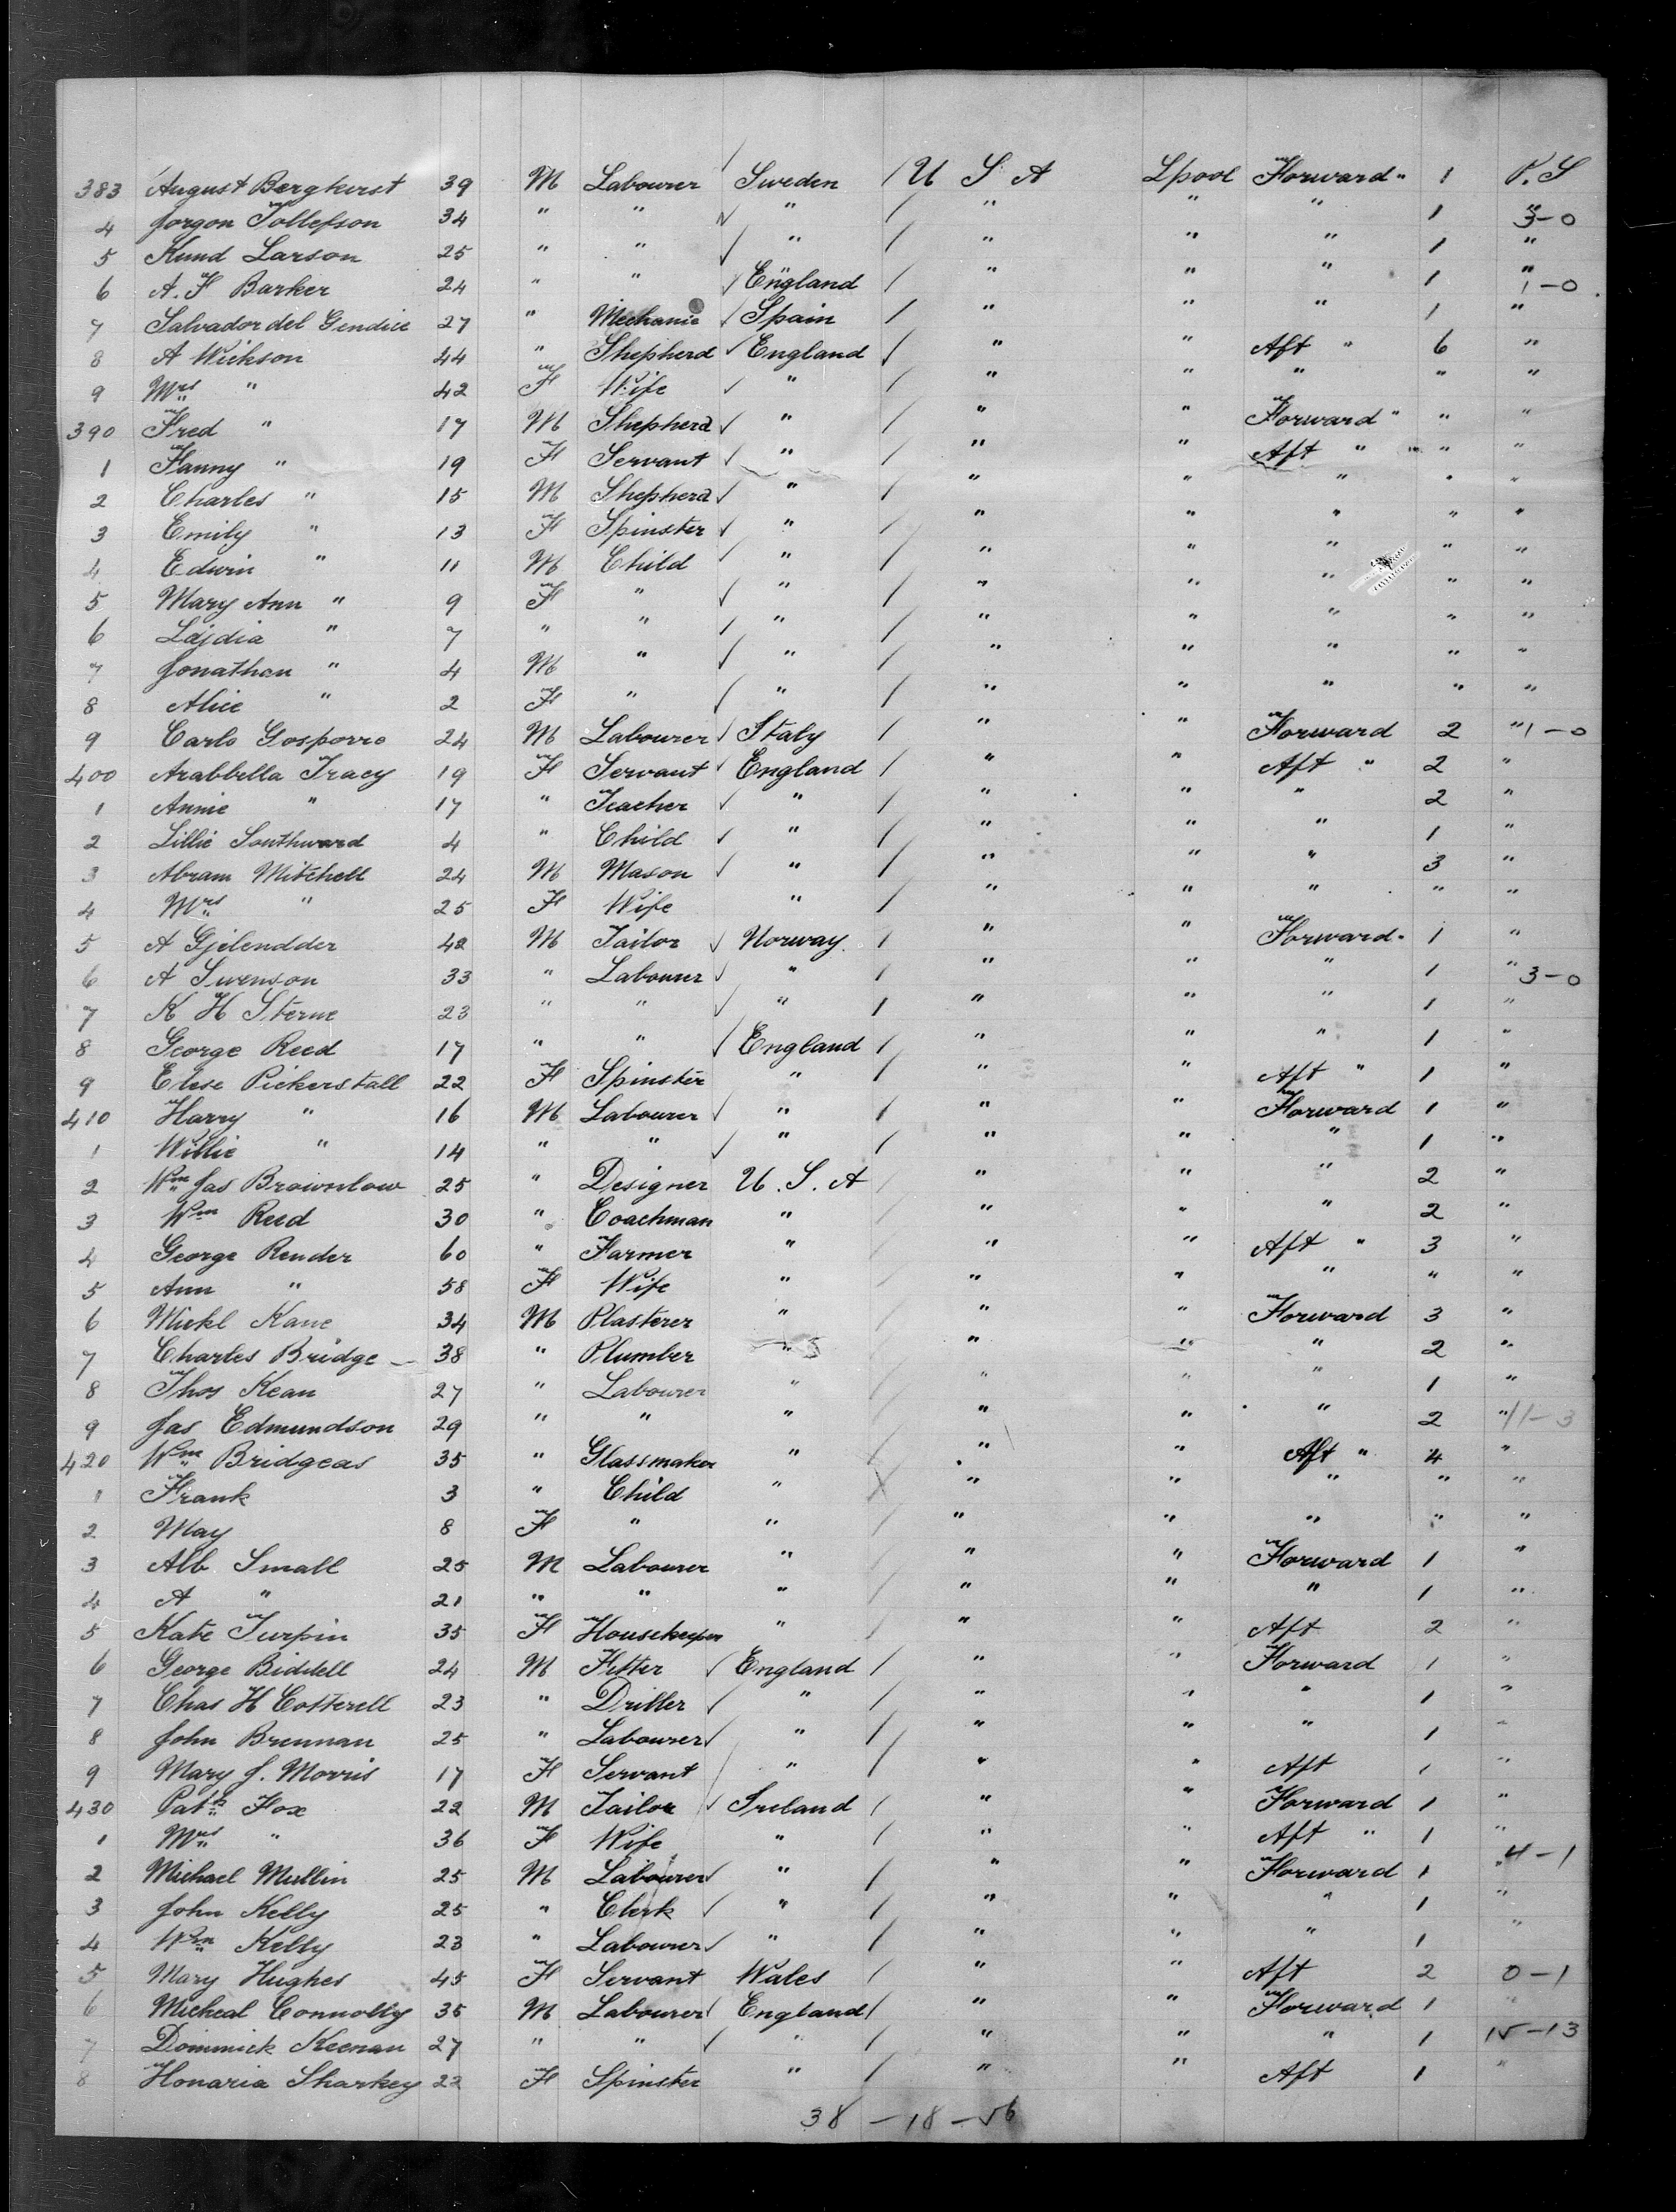 383 August Bergkvist 39 M Labourer Sweden / U S A Lpool Forward " 1 P.S
4 Jorgon Tollefson 34 " " ✓ " / " " " 1 " 3-0
5 Knud Larson 25 " " ✓ " / " " " 1 "
6 A. F Barker 24 " " ✓ England / " " " 1 " 1-0
7 Salvador del Gendice 27 " Mechanic ✓ Spain / " " " 1 "
8 A Wickson 44 " Shepherd ✓ England / " " Aft " 6 "
9 Mrs " 42 F Wife ✓ " / " " " " "
390 Fred " 17 M Shepherd ✓ " / " " Forward " " "
1 Fanny " 19 F Servant ✓ " / " " Aft " " "
2 Charles " 15 M Shepherd ✓ " / " " " " "
3 Emily " 13 F Spinster ✓ " / " " " " "
4 Edwin " 11 M Child ✓ " / " " " " "
5 Mary Ann " 9 F " ✓ " / " " " " "
6 Lydia " 7 " " / " / " " " " "
7 Jonathan " 4 M " ✓ " / " " " " "
8 Alice " 2 F " / " / " " " " "
9 Carlo Gosporro 24 M Labourer ✓ Italy / " " Forward 2 " 1-0
400 Arabbella Tracy 19 F Servant ✓ England / " " Aft " 2 "
1 Annie " 17 " Teacher ✓ " / " " " 2 "
2 Lillie Southward 4 " Child ✓ " / " " " 1 "
3 Abram Mitchell 24 M Mason ✓ " / " " " 3 "
4 Mrs " 25 F Wife " / " " " " "
5 A Gjelendder 42 M Tailor ✓ Norway / " " Forward " 1 "
6 A Swenson 33 " Labourer ✓ " / " " " 1 " 3-0
7 K H Sterne 23 " " ✓ " / " " " 1 "
8 George Reed 17 " " ✓ England / " " " 1 "
9 Elese Pickerstall 22 F Spinster " / " " Aft " 1 "
410 Harry " 16 M Labourer ✓ " / " " Forward 1 "
1 Willie " 14 " " ✓ " / " " " 1 "
2 Wm Jas Brownlow 25 " Designer U.S.A / " " " 2 "
3 Wm Reed 30 " Coachman " / " " " 2 "
4 George Render 60 " Farmer " / " " Aft " 3 "
5 Ann " 58 F Wife " / " " " " "
6 Mickl Kane 34 M Plasterer " / " " Forward 3 "
7 Charles Bridge 38 " Plumber " / " " " 2 "
8 Thos Kean 27 " Labourer " / " " " 1 "
9 Jas Edmundson 29 " " " / " " " 2 " 11-3
420 Wm Bridgeas 35 " Glassmaker " / " " Aft " 4 "
1 Frank 3 " Child " X " " " " "
2 May 8 F " " / " " " " "
3 Alb Small 25 M Labourer " / " " Forward 1 "
4 A " 21 " " " / " " " 1 "
5 Kate Turpin 35 F Housekeeper " / " " Aft 2 "
6 George Biddell 24 M Fitter ✓ England / " " Forward 1 "
7 Chas H Cotterell 23 " Driller ✓ " / " " " 1 "
8 John Brennan 25 " Labourer ✓ " / " " " 1 "
9 Mary J. Morris 17 F Servant / " / " " Aft 1 "
430 Patk Fox 22 M Tailor ✓ Ireland / " " Forward 1 "
1 Mrs " 36 F Wife " / " " Aft " 1 "
2 Michael Mullin 25 M Labourer ✓ " / " " Forward 1 " 4-1
3 John Kelly 25 " Clerk ✓ " / " " " 1 "
4 Wm Kelly 23 " Labourer ✓ " / " " " 1 "
5 Mary Hughes 45 F Servant Wales / " " Aft 2 0-1
6 Micheal Connolly 35 M Labourer ✓ England / " " Forward 1 "
7 Dominick Keenan 27 " " ✓ " / " " " 1 15-13
8 Honaria Sharkey 22 F Spinster " / " " Aft 1 "
38-18-56